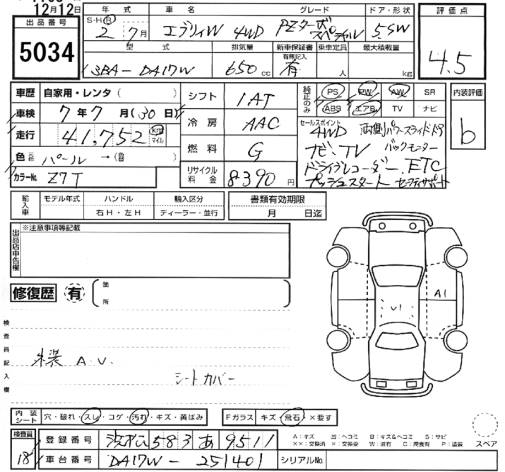 12月12日
出品番号
5034
年式 車名 グレード ドア・形状
S・H・R 2年 7月 エブリィW 4WD PZターボスペシャル 5.SW
型式 排気量 新車保証書 乗車定員 最大積載量
3BA-DA17W 650cc 有 人 kg
評価点
4.5
車歴 自家用・レンタ( )
車検 7年 7月(30日)
走行 41,752 km マイル
色 パール →( )
カラーNo. Z7T
シフト 1AT
冷房 AAC
燃料 G
リサイクル料金 8390円
純正のみ PS PW AW SR
ABS エアB TV ナビ
セールスポイント
4WD 両側パワースライドドア
ナビ、TV バックモニター
ドライブレコーダー、ETC
プッシュスタート セーフティサポート
内装評価
b
輸入車 モデル年式 ハンドル 輸入区分
年 右H・左H ディーラー・並行
書類有効期限
月 日迄
出品店申告欄
※注意事項等記載
修復歴 有 箇所
検査員記入欄
A1
U1
内装 A.U.
シートカバー
内装シート 穴・破れ・スレ・コゲ・汚れ・キズ・黄ばみ
Fガラス キズ・飛石・×要す
A:キズ U:ヘコミ B:キズ&ヘコミ S:サビ
スペア
検査員
18
登録番号 浜松 583 あ 9511
車台番号 DA17W-251401
シリアルNo.